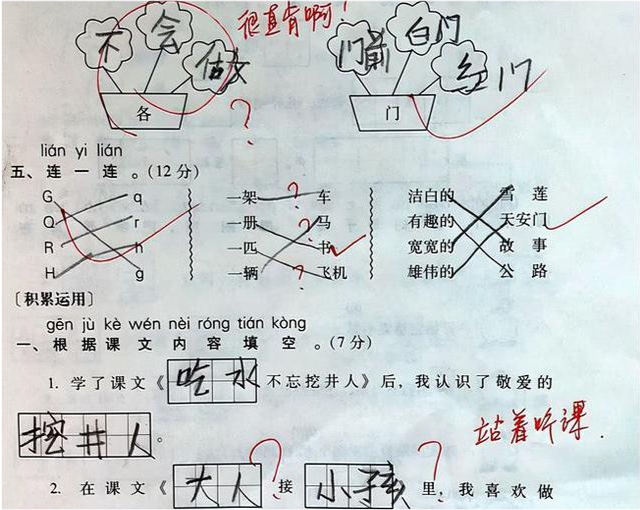 不 会 做 很直肯啊! 门前 白门 红门
各 ? 门
lián yi lián
五、连一连。(12分)
G q 一架 ? 车 洁白的 雪莲
Q r 一册 ? 马 有趣的 天安门
R h 一匹 书 宽宽的 故事
H g 一辆 ? 飞机 雄伟的 公路
〔积累运用〕
gēn jù kè wén nèi róng tián kòng
一、根据课文内容填空。(7分)
1. 学了课文《吃水不忘挖井人》后,我认识了敬爱的
挖井人。 站着听课.
2. 在课文《大人?接小孩?里,我喜欢做